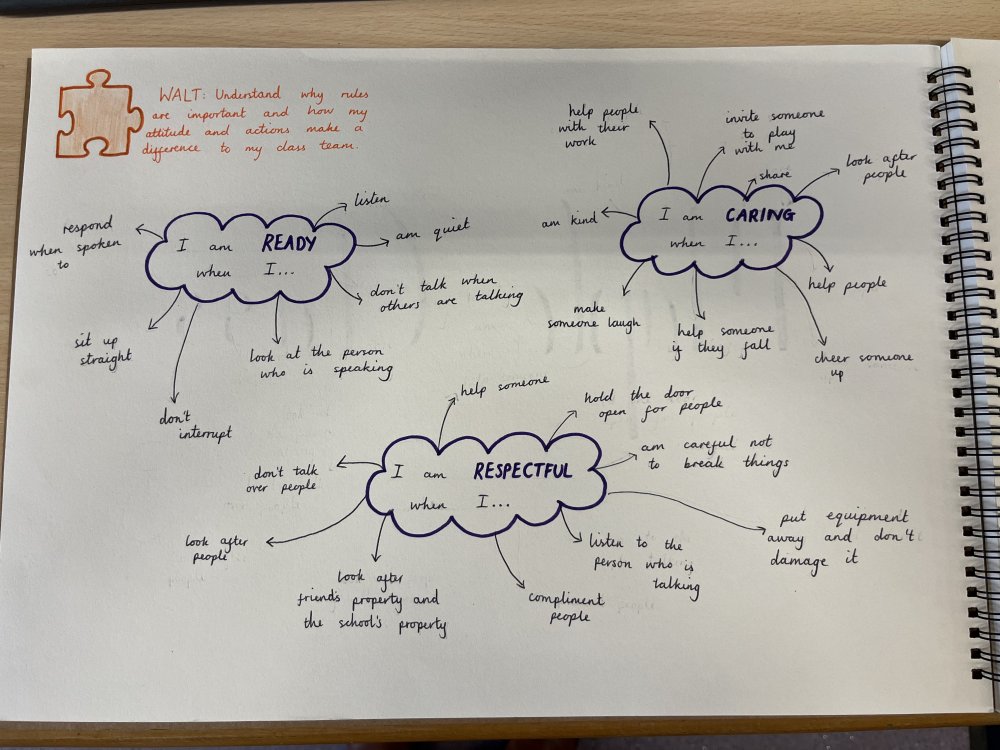 WALT: Understand why rules
are important and how my
attitude and actions make a
difference to my class team.
I am READY
when I...
listen
am quiet
don't talk when
others are talking
look at the person
who is speaking
don't
interrupt
sit up
straight
respond
when spoken
to
I am CARING
when I...
help people
with their
work
invite someone
to play
with me
share
look after
people
help people
cheer someone
up
help someone
if they fall
make
someone laugh
am kind
I am RESPECTFUL
when I...
help someone
hold the door
open for people
am careful not
to break things
put equipment
away and don't
damage it
listen to the
person who is
talking
compliment
people
look after
friend's property and
the school's property
look after
people
don't talk
over people